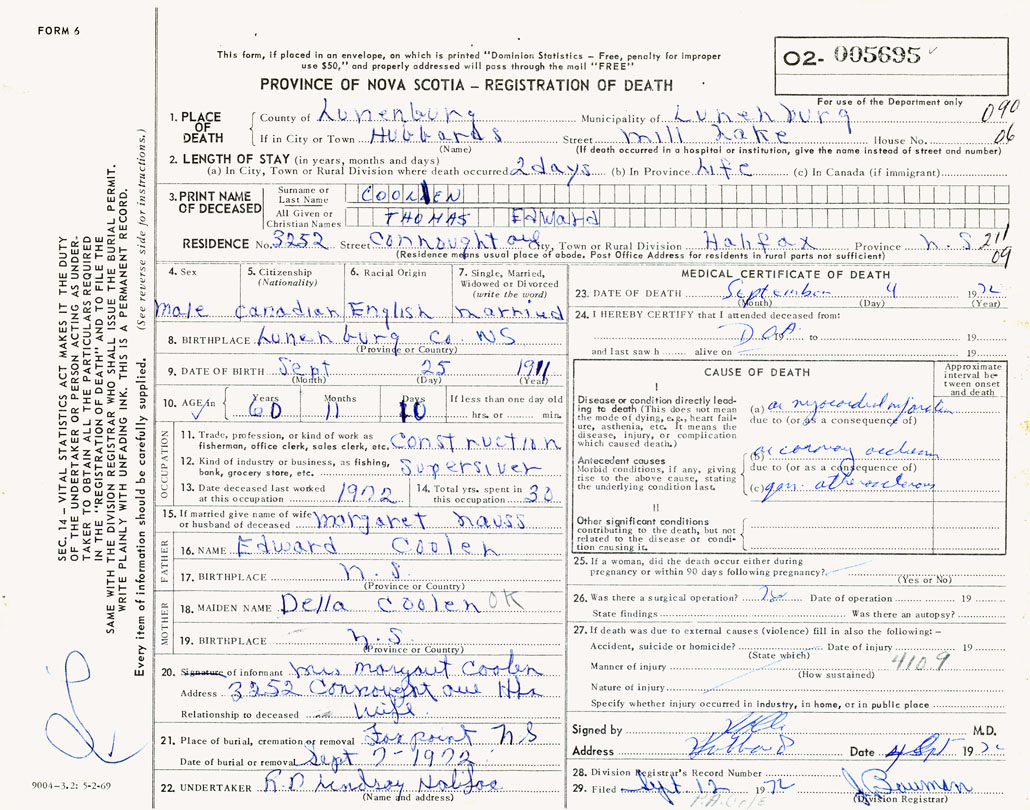 FORM 6
This form, if placed in an envelope, on which is printed "Dominion Statistics – Free, penalty for improper
use $50," and properly addressed will pass through the mail "FREE"
O2- 005695
PROVINCE OF NOVA SCOTIA – REGISTRATION OF DEATH
For use of the Department only
090
1. PLACE OF DEATH County of Lunenburg Municipality of Lunenburg
If in City or Town Hubbards Street Mill Lake House No. 06
(Name) (If death occurred in a hospital or institution, give the name instead of street and number)
2. LENGTH OF STAY (in years, months and days)
(a) In City, Town or Rural Division where death occurred 2 days (b) In Province Life (c) In Canada (if immigrant)
3. PRINT NAME OF DECEASED Surname or Last Name COOLEN
All Given or Christian Names THOMAS Edward
RESIDENCE No. 3252 Street Connought ave City, Town or Rural Division Halifax Province N.S. 211
(Residence means usual place of abode. Post Office Address for residents in rural parts not sufficient) 09
4. Sex 5. Citizenship (Nationality) 6. Racial Origin 7. Single, Married, Widowed or Divorced (write the word)
male Canadian English married
8. BIRTHPLACE Lunenburg Co. NS
(Province or Country)
9. DATE OF BIRTH Sept 25 1911
(Month) (Day) (Year)
10. AGE in Years Months Days If less than one day old
60 11 10 hrs. or min.
OCCUPATION
11. Trade, profession, or kind of work as fisherman, office clerk, sales clerk, etc. Construction
12. Kind of industry or business, as fishing, bank, grocery store, etc. Supersiver
13. Date deceased last worked at this occupation 1972 14. Total yrs. spent in this occupation 30
15. If married give name of wife or husband of deceased Margaret Nauss
FATHER
16. NAME Edward Coolen
17. BIRTHPLACE N.S.
(Province or Country)
MOTHER
18. MAIDEN NAME Della Coolen OK
19. BIRTHPLACE N.S.
(Province or Country)
20. Signature of informant Mrs Margaret Coolen
Address 3252 Connought ave Hfx
Relationship to deceased Wife
21. Place of burial, cremation or removal Fox point NS
Date of burial or removal Sept 7-1972
22. UNDERTAKER R.D Lindsay Halifax
(Name and address)
MEDICAL CERTIFICATE OF DEATH
23. DATE OF DEATH September 4 1972
(Month) (Day) (Year)
24. I HEREBY CERTIFY that I attended deceased from:
D.O.A. 19 to 19
and last saw h alive on 19
CAUSE OF DEATH
Approximate interval between onset and death
I
Disease or condition directly leading to death (This does not mean the mode of dying, e.g., heart failure, asthenia, etc. It means the disease, injury, or complication which caused death.)
(a) ac myocardial infarction
due to (or as a consequence of)
Antecedent causes
Morbid conditions, if any, giving rise to the above cause, stating the underlying condition last.
(b) ac coronary occlusion
due to (or as a consequence of)
(c) gen. atherosclerosis
II
Other significant conditions contributing to the death, but not related to the disease or condition causing it.
25. If a woman, did the death occur either during pregnancy or within 90 days following pregnancy?
(Yes or No)
26. Was there a surgical operation? No Date of operation 19
State findings Was there an autopsy?
27. If death was due to external causes (violence) fill in also the following: –
Accident, suicide or homicide? Date of injury 19
(State which)
Manner of injury 4109
(How sustained)
Nature of injury
Specify whether injury occurred in industry, in home, or in public place
Signed by M.D.
Address Hubbards Date 4 Sept 1972
28. Division Registrar's Record Number
29. Filed Sept. 12 1972 J. Bauman
(Division Registrar)
SEC. 14 – VITAL STATISTICS ACT MAKES IT THE DUTY
OF THE UNDERTAKER OR PERSON ACTING AS UNDER-
TAKER TO OBTAIN ALL THE PARTICULARS REQUIRED
IN THE "REGISTRATION OF DEATH" AND TO FILE THE
SAME WITH THE DIVISION REGISTRAR WHO SHALL ISSUE THE BURIAL PERMIT.
WRITE PLAINLY WITH UNFADING INK. THIS IS A PERMANENT RECORD.
Every item of information should be carefully supplied. (See reverse side for instructions.)
9004–3.2: 5-2-69